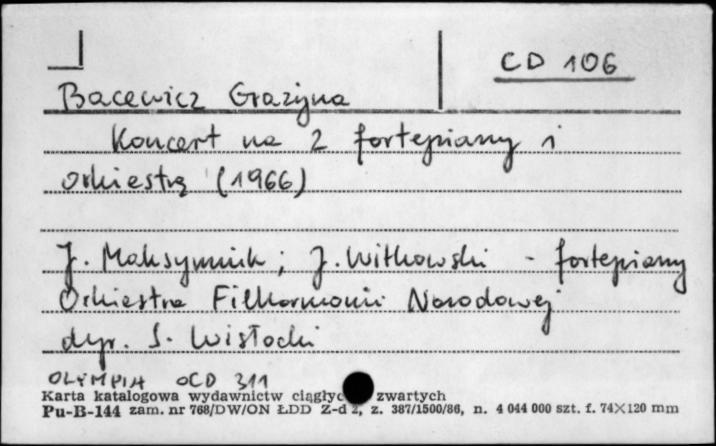 CD 106
Bacewicz Grażyna
Koncert na 2 fortepiany i
orkiestrę (1966)
J. Maksymiuk; J. Witkowski - fortepiany
Orkiestra Filharmonii Narodowej
dyr. S. Wisłocki
OLYMPIA OCD 311
Karta katalogowa wydawnictw ciągłyc zwartych
Pu-B-144 zam. nr 768/DW/ON ŁDD Z-d 2, z. 387/1500/86, n. 4 044 000 szt. f. 74×120 mm